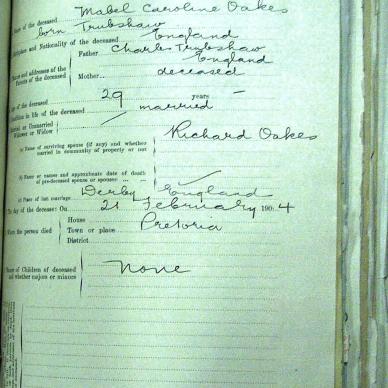 Name of the deceased Mabel Caroline Oakes
born Trubshaw
Birthplace and Nationality of the deceased England
Names and addresses of the parents of the deceased Father Charles Trubshaw England
Mother deceased
Age of the deceased 29 years —
Condition in life of the deceased married
Married or Unmarried
Widower or Widow
(a) Name of surviving spouse (if any) and whether married in community of property or not Richard Oakes
(b) Name or names and approximate date of death of pre-deceased spouse or spouses
(c) Place of last marriage Derby England
The day of the decease: On 21 February 1904
Where the person died House
Town or place Pretoria
District
Names of Children of deceased and whether majors or minors None